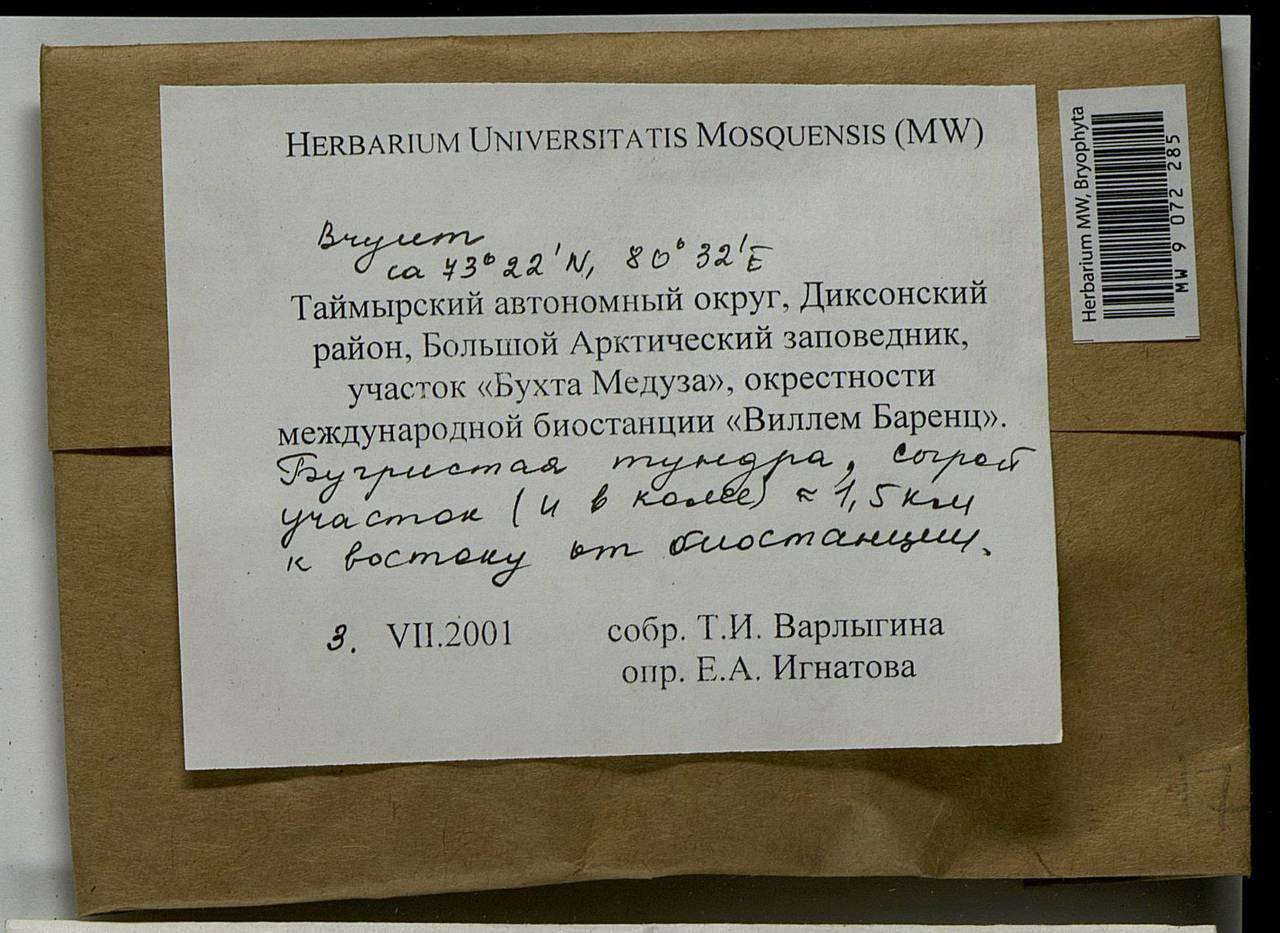 HERBARIUM UNIVERSITATIS MOSQUENSIS (MW)
Bryum
ca 73° 22' N, 80° 32' E
Таймырский автономный округ, Диксонский
район, Большой Арктический заповедник,
участок «Бухта Медуза», окрестности
международной биостанции «Виллем Баренц».
Бугристая тундра, сырой
участок (и в колее) ≈ 1,5 км
к востоку от биостанции.
3. VII.2001
собр. Т.И. Варлыгина
опр. Е.А. Игнатова
Herbarium MW, Bryophyta
MW 9 072 285